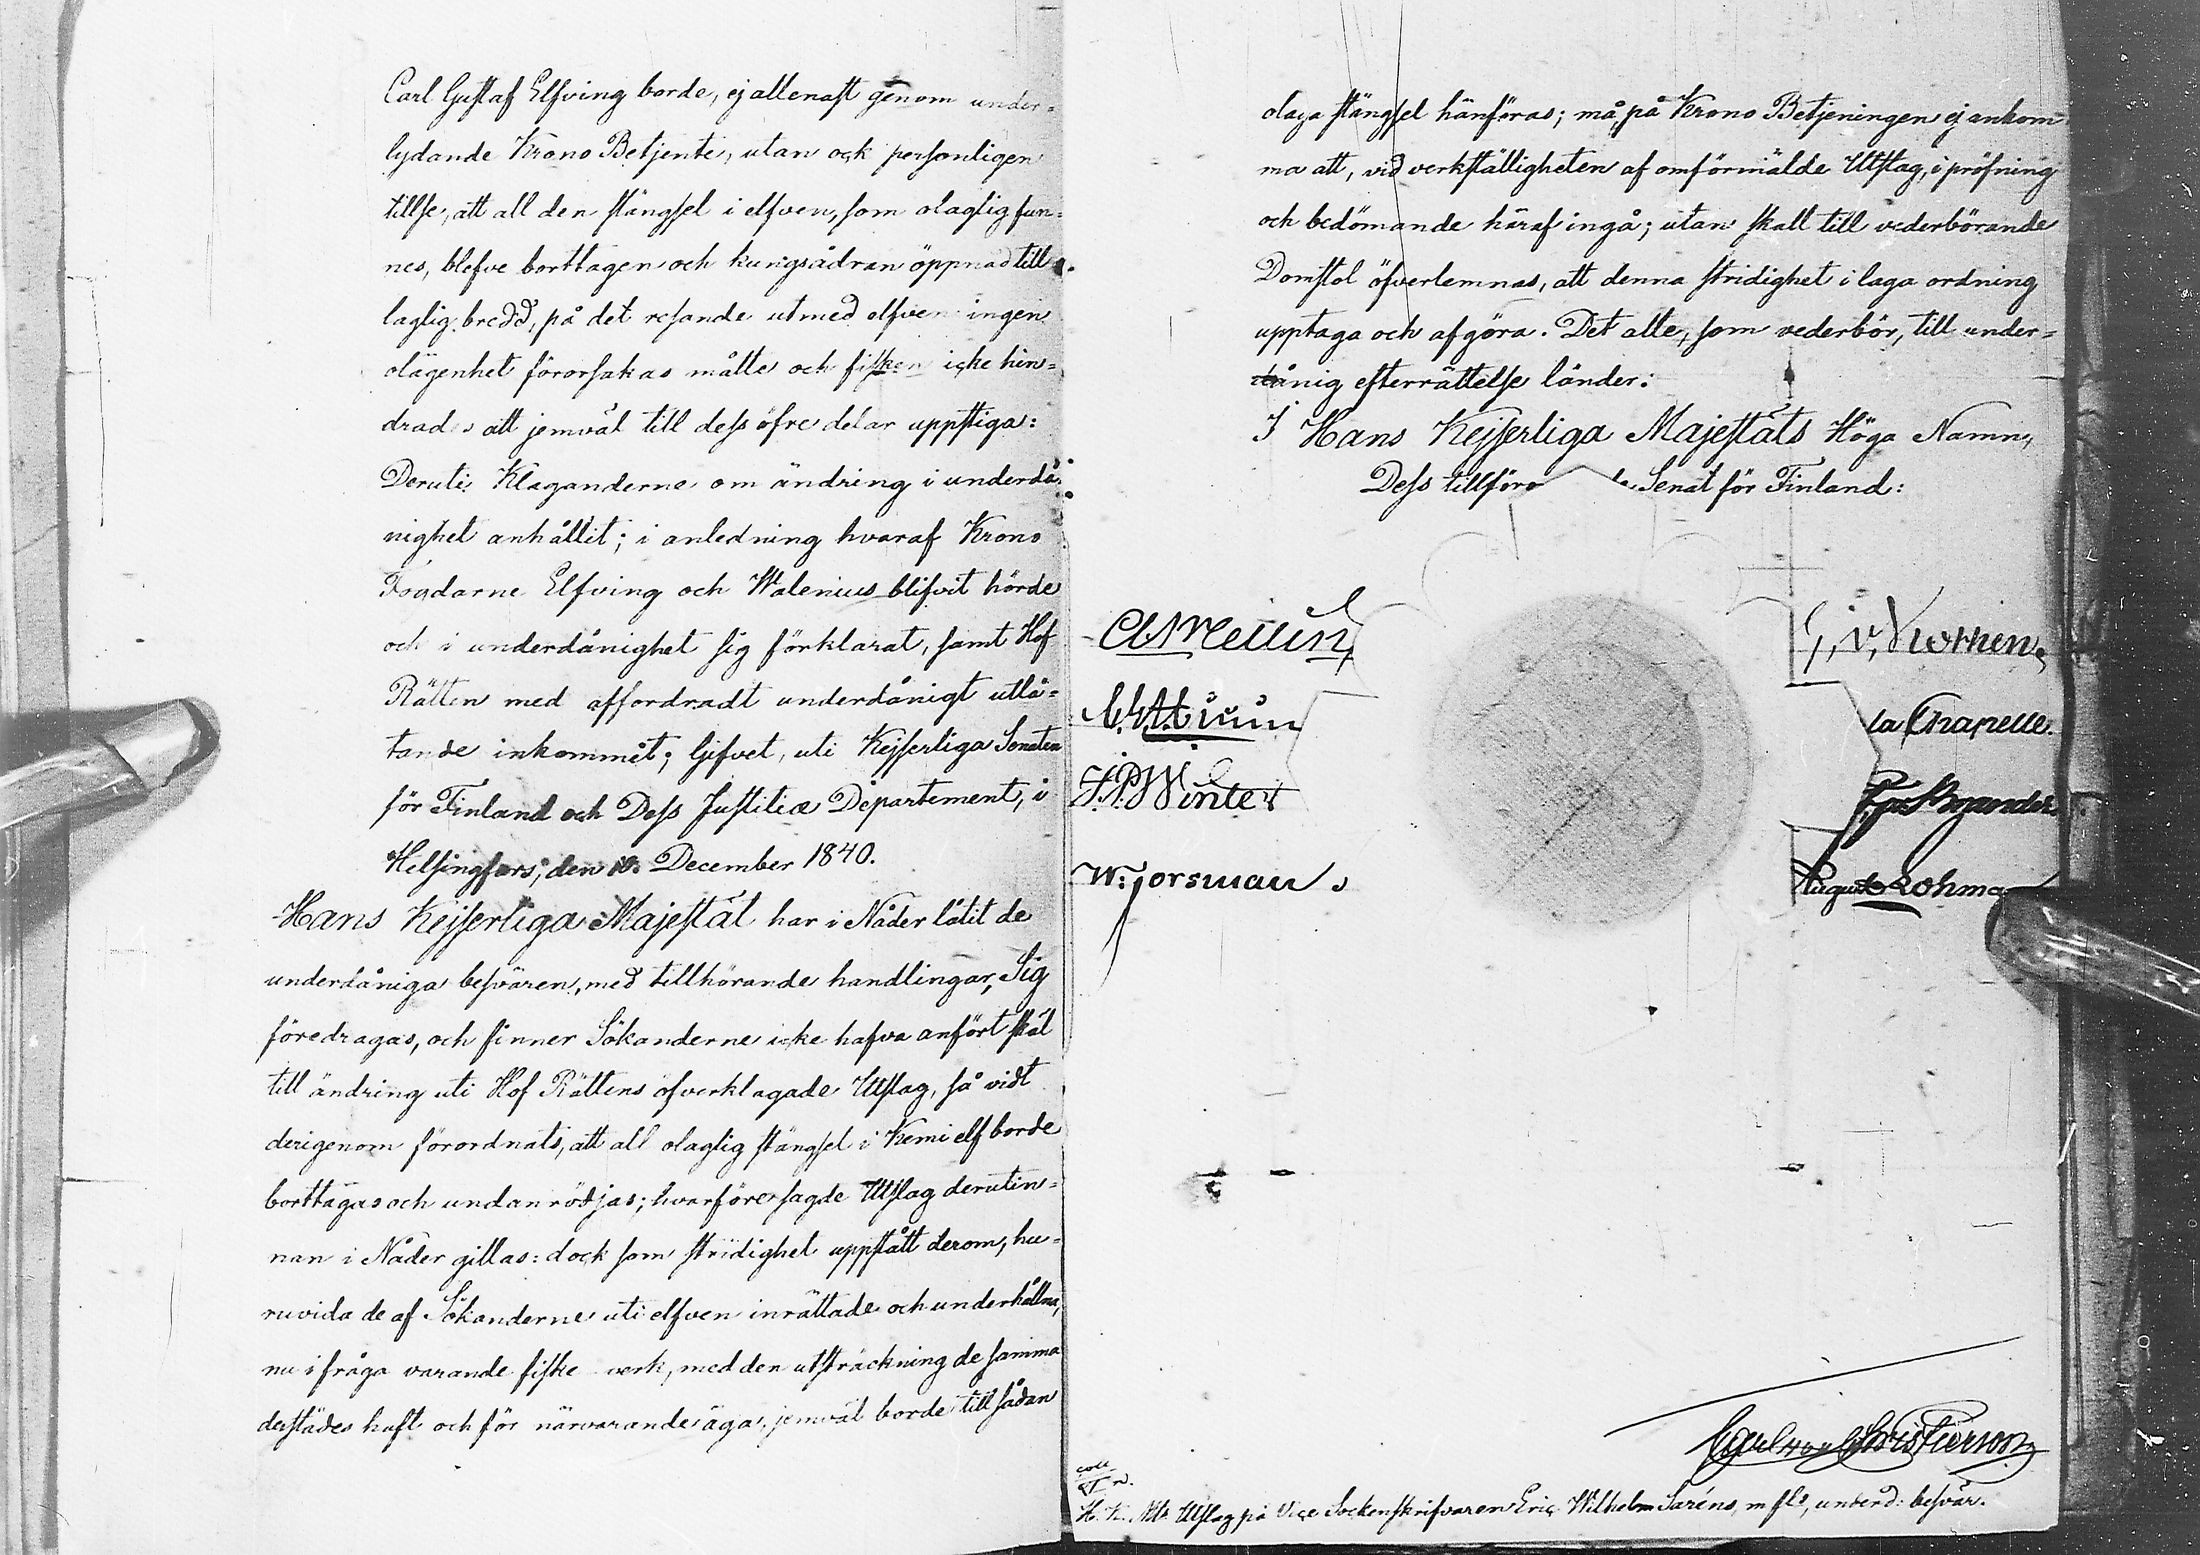 Carl Gustaf Elfving borde, ej allenast genom under=
lydande Krono Betjente, utan ock personligen
tillse, att all den stängsel i elfven, som olaglig fun=
nes, blefve borttagen och kungsådran öppnad till
laglig bredd, på det resande utmed elfven ingen
olägenhet förorsakas måtte och fisken icke hin=
drades att jemväl till dess öfre delar uppstiga:
Deruti Klaganderne om ändring i underdå=
nighet anhållit; i anledning hvaraf Krono
Fogdarne Elfving och Walenius blifvit hörde
och i underdånighet sig förklarat, samt Hof
Rätten med affordradt underdånigt utlå=
tande inkommit; Gifvet, uti Kejserliga Senaten
för Finland och Dess Justitiæ Departement, i
Helsingfors, den December 1840.
Hans Kejserliga Majestät har i Nåder låtit de
underdåniga besvären, med tillhörande handlingar, Sig
föredragas, och finner Sökanderne icke hafva anfört skäl
till ändring uti Hof Rättens öfverklagade Utslag, så vidt
derigenom förordnats, att all olaglig stängsel i Kemi elf borde
borttagas och undanrödjas; hvarföre sagde Utslag derutin=
nan i Nåder gillas: dock som stridighet uppstått derom, hu=
ruvida de af Sökanderne uti elfven inrättade och underhållna,
nu i fråga varande fiske verk, med den utsträckning de samma
derstädes haft och för närvarande äga, jemväl borde till sådan
olaga stängsel hänföras; må på Krono Betjeningen ej ankom
ma att, vid verkställigheten af omförmälde Utslag, i pröfning
och bedömande häraf ingå; utan skall till vederbörande
Domstol öfverlemnas, att denna stridighet i laga ordning
upptaga och afgöra. Det alle, som vederbör, till under=
dånig efterrättelse länder.
I Hans Kejserliga Majestäts Höga Namn,
Dess tillföro de Senat för Finland:
J.P. Winter
la Chapelle.
W: Forsman
Carl von Christierson
coll
H. K. M:ts Utslag på Vice Sockenskrifvaren Eric Wilhelm Saréns, m fl:s, underd: besvär.